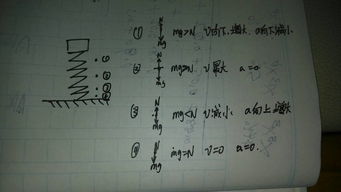 ① N mg mg>N v向下增大, a向下减小.
② N mg mg=N v最大 a=0
③ N mg mg<N v减小 a向上增大
④ N mg mg=N v=0 a=0.